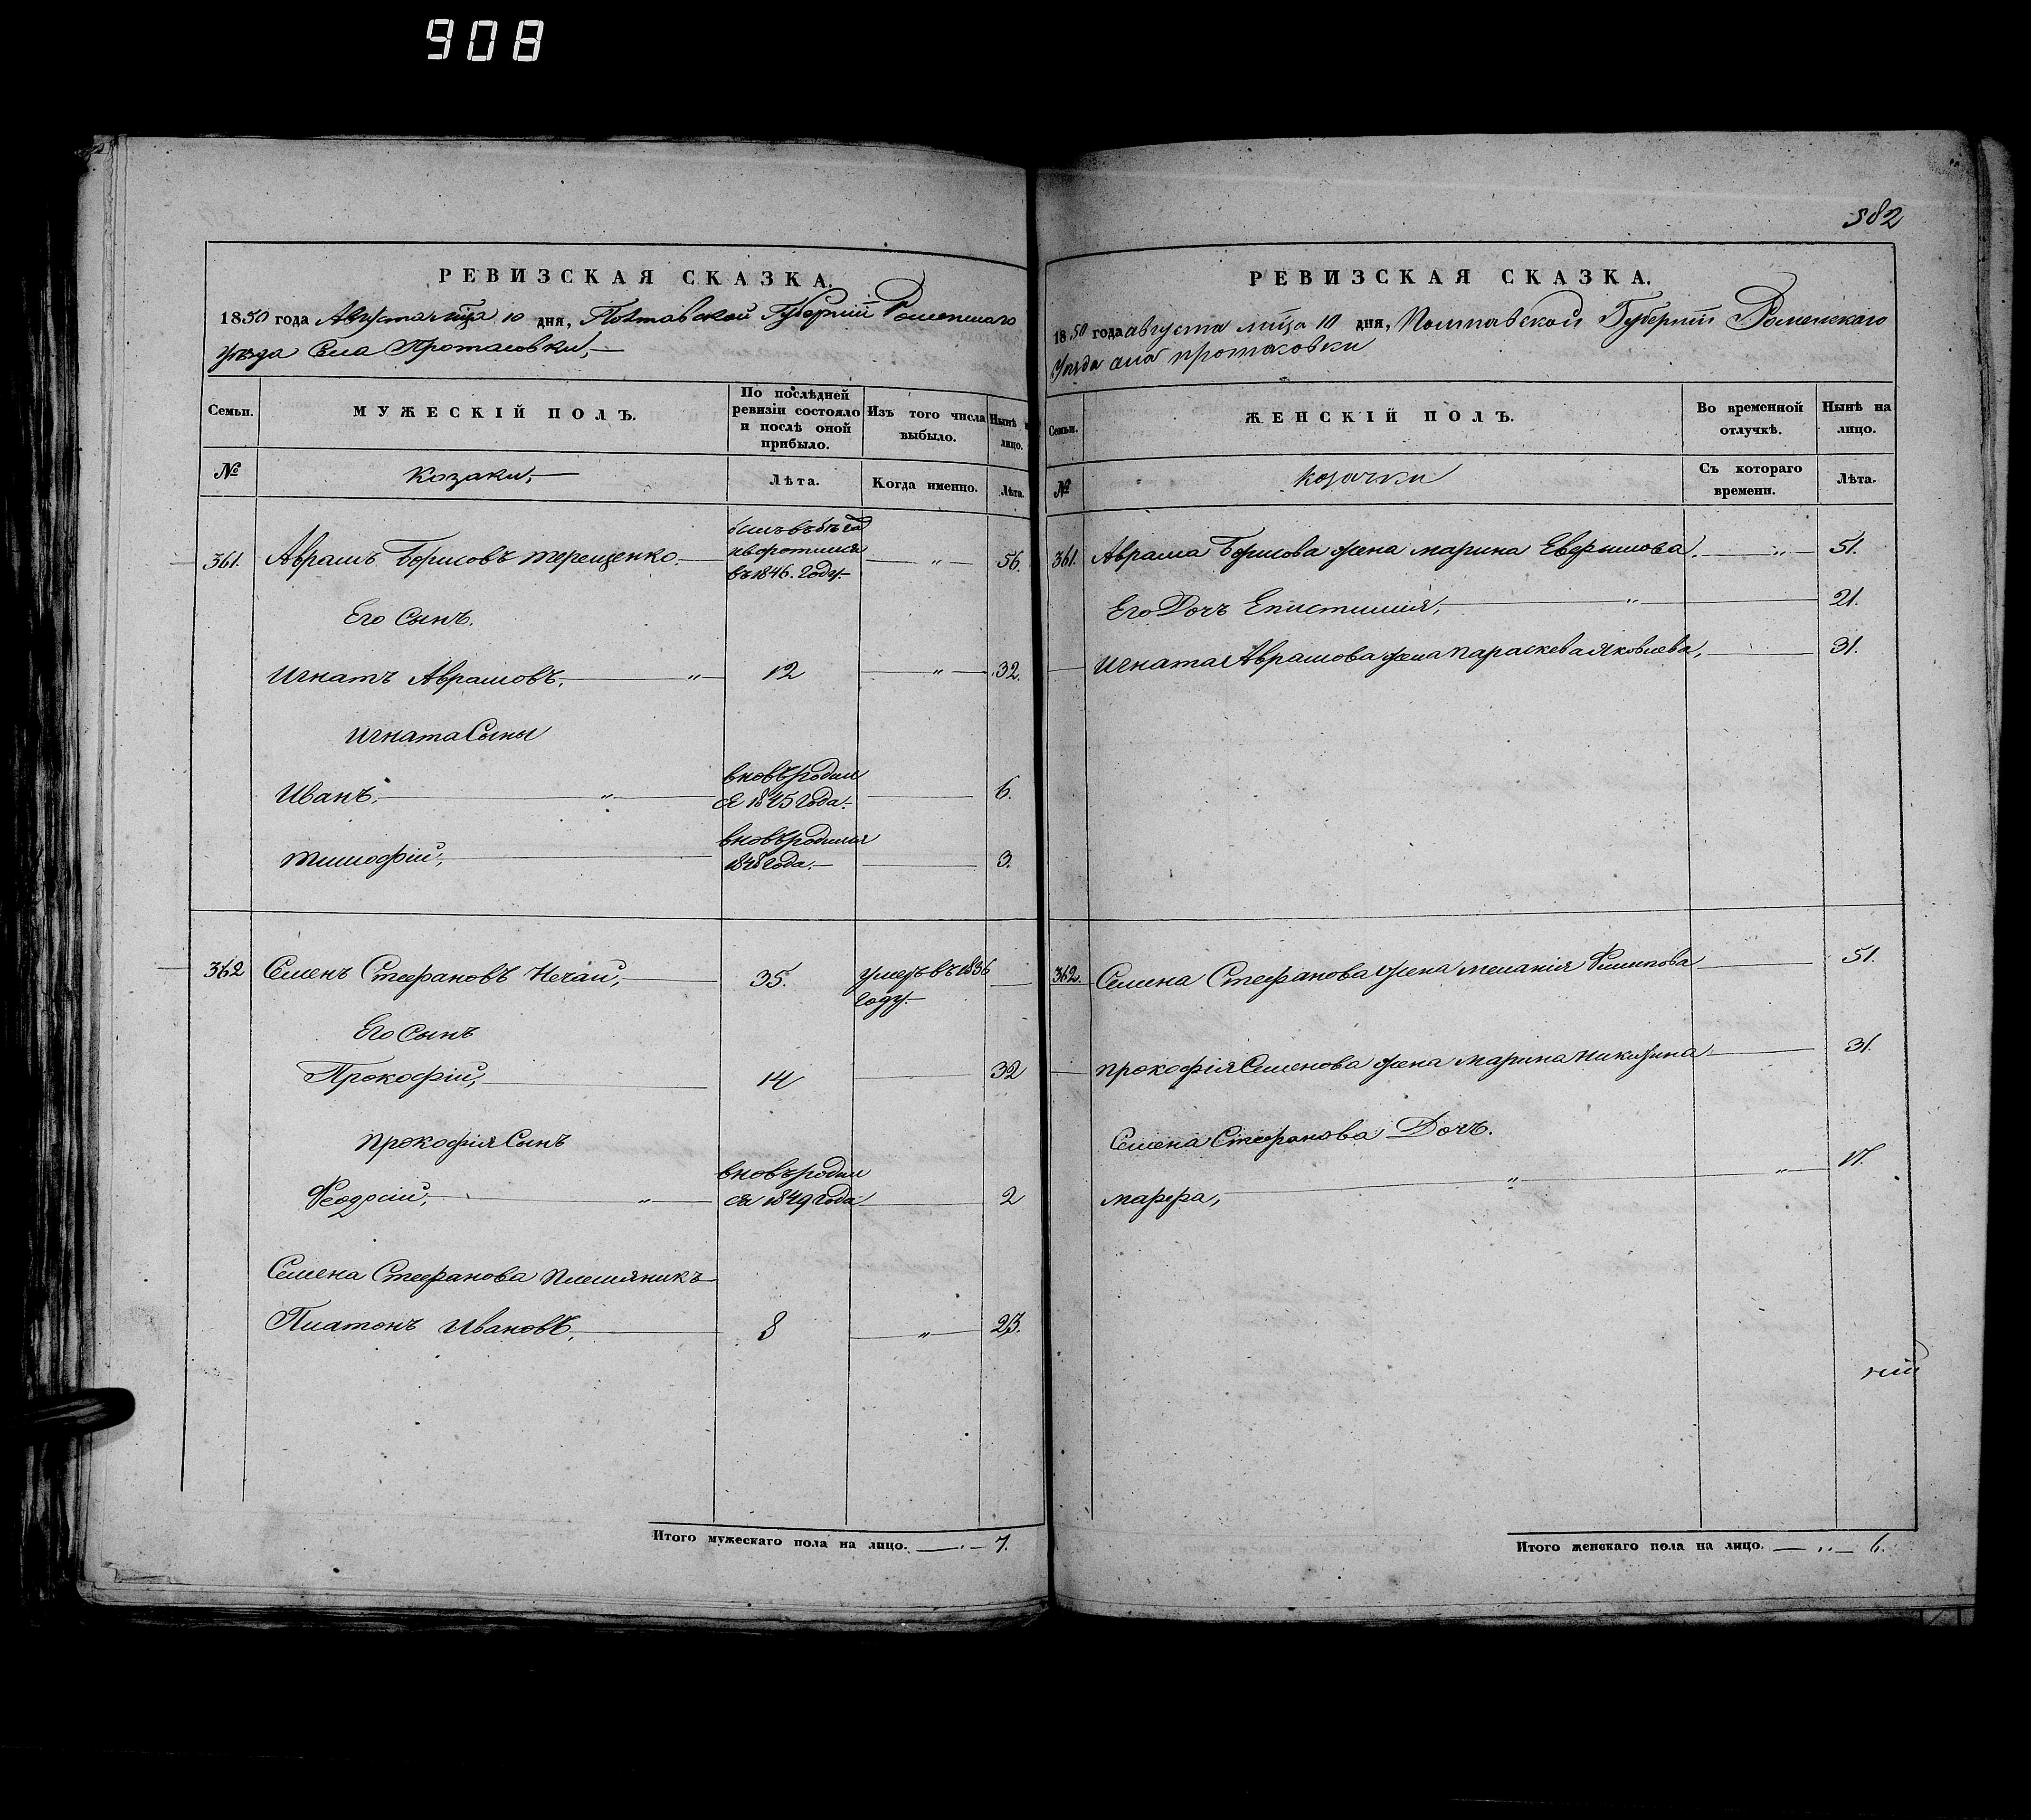 908
РЕВИЗСКАЯ СКАЗКА.
1850 года Августа мца 10 дня, Полтавской Губерніи Роменскаго
уезда Села Протасовки,
Семьи.
МУЖЕСКІЙ ПОЛЪ.
По послѣдней ревизіи состояло и послѣ оной прибыло.
Изъ того числа выбыло.
Нынѣ на лицо.
№
Козаки,
Лѣта.
Когда именно.
Лѣта.
361.
Аврамъ Борисовъ терещенко.
въ 1846. году
"
56.
Его Сынъ.
Игнатъ Аврамовъ,
"
12
"
32.
Игната Сыны
Иванъ,
"
вновъ родил
ся 1845 года.
6.
тимофій,
вновъ родился
1848 года.
3.
362
Семенъ Стефановъ Нечай,
35.
умеръ въ 1836
году.
Его Сынъ
Прокофій,
14
32
Прокофія Сынъ
Феодосій,
"
вновъ родил
ся 1849 года
2
Семена Стефанова племяникъ
Платонъ Ивановъ,
8
"
23.
Итого мужескаго пола на лицо. 7.
382
РЕВИЗСКАЯ СКАЗКА.
1850 года августа мца 10 дня, Полтавской Губерніи Роменскаго
Уезда села протасовки
Семьи.
ЖЕНСКІЙ ПОЛЪ.
Во временной отлучкѣ.
Нынѣ на лицо.
№
козачки
Съ котораго времени.
Лѣта.
361.
Аврама Борисова жена марина
"
51.
Его Дочъ Епистимия,
"
21.
Игната Аврамова жена параскева Яковлева,
31.
362.
Семена Стефанова жена меланія Филипова
51.
прокофія Семенова жена марина никитина
31.
Семена Стефанова Дочъ.
марфа,
"
"
17.
ній
Итого женскаго пола на лицо. 6.